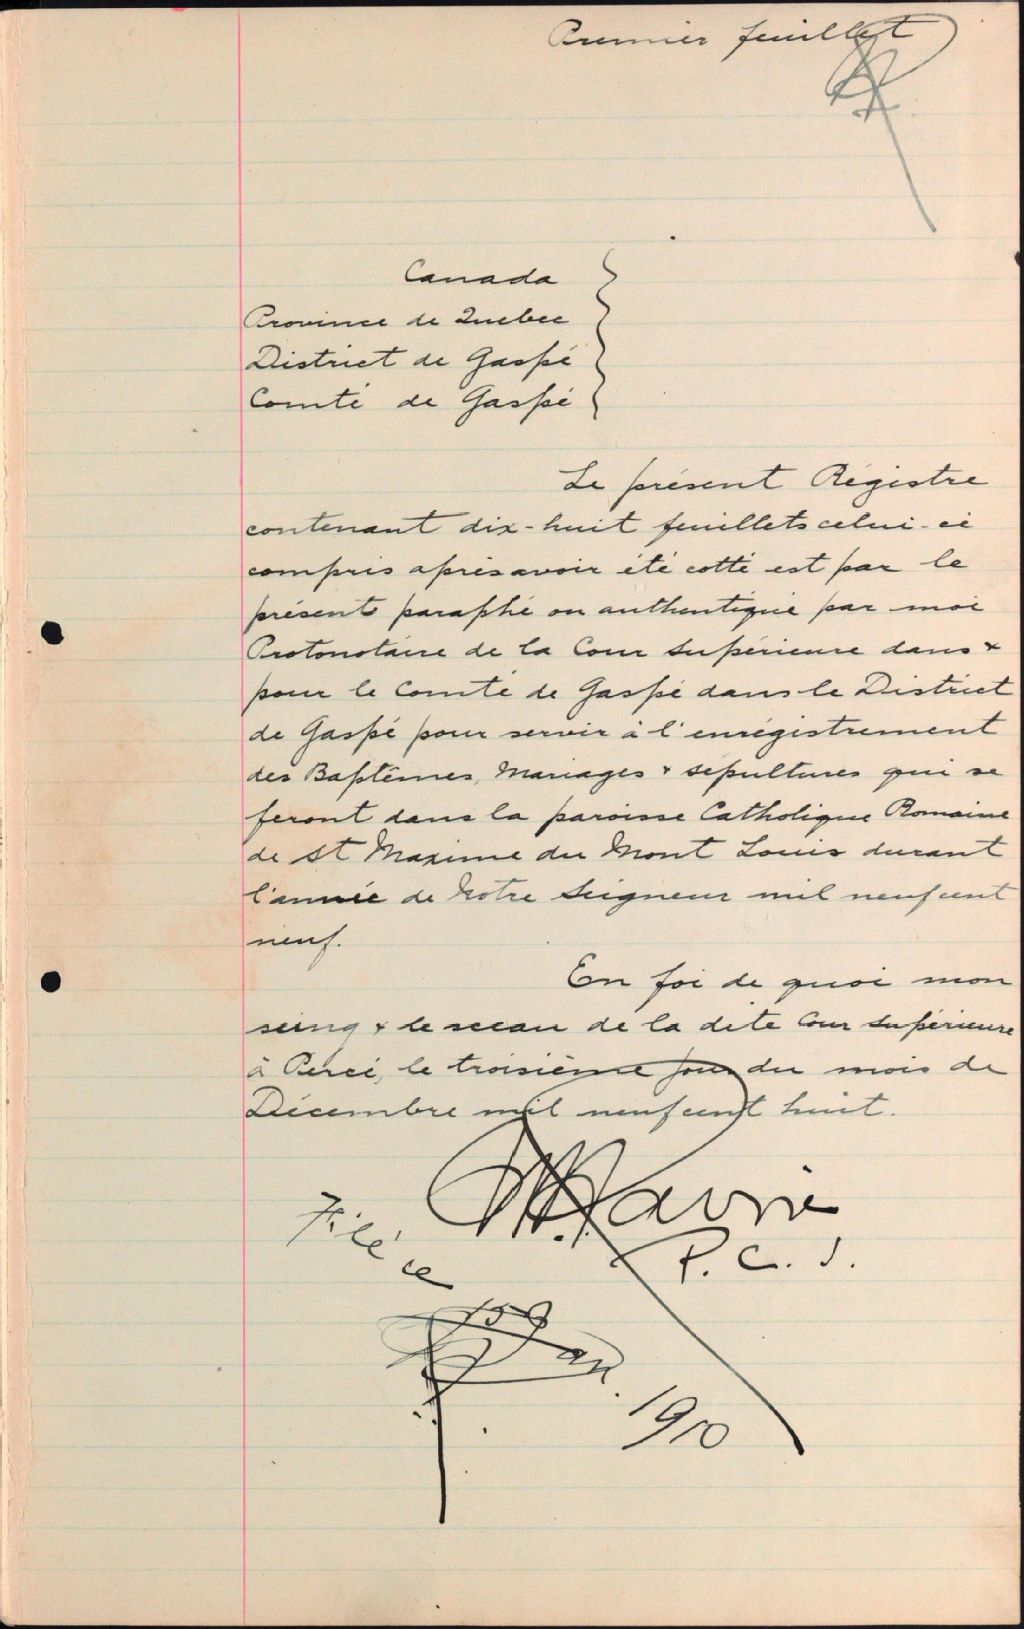 Premier feuillet
Canada
Province de Quebec
District de Gaspé
Comté de Gaspé
Le présent Régistre
contenant dix-huit feuillets celui-ci
compris après avoir été cotté est par le
présent paraphé ou authentiqué par moi
Protonotaire de la Cour Supérieure dans &
pour le Comté de Gaspé dans le District
de Gaspé pour servir à l'enrégistrement
des Baptêmes, Mariages & sepultures qui se
feront dans la paroisse Catholique Romaine
de St Maxime du Mont Louis durant
l'année de Notre Seigneur mil neuf cent
neuf.
En foi de quoi mon
seing & le sceau de la dite Cour Supérieure
à Percé, le troisième jour du mois de
Décembre mil neuf cent huit.
P. C. S.
Filé ce
Jan.
1910